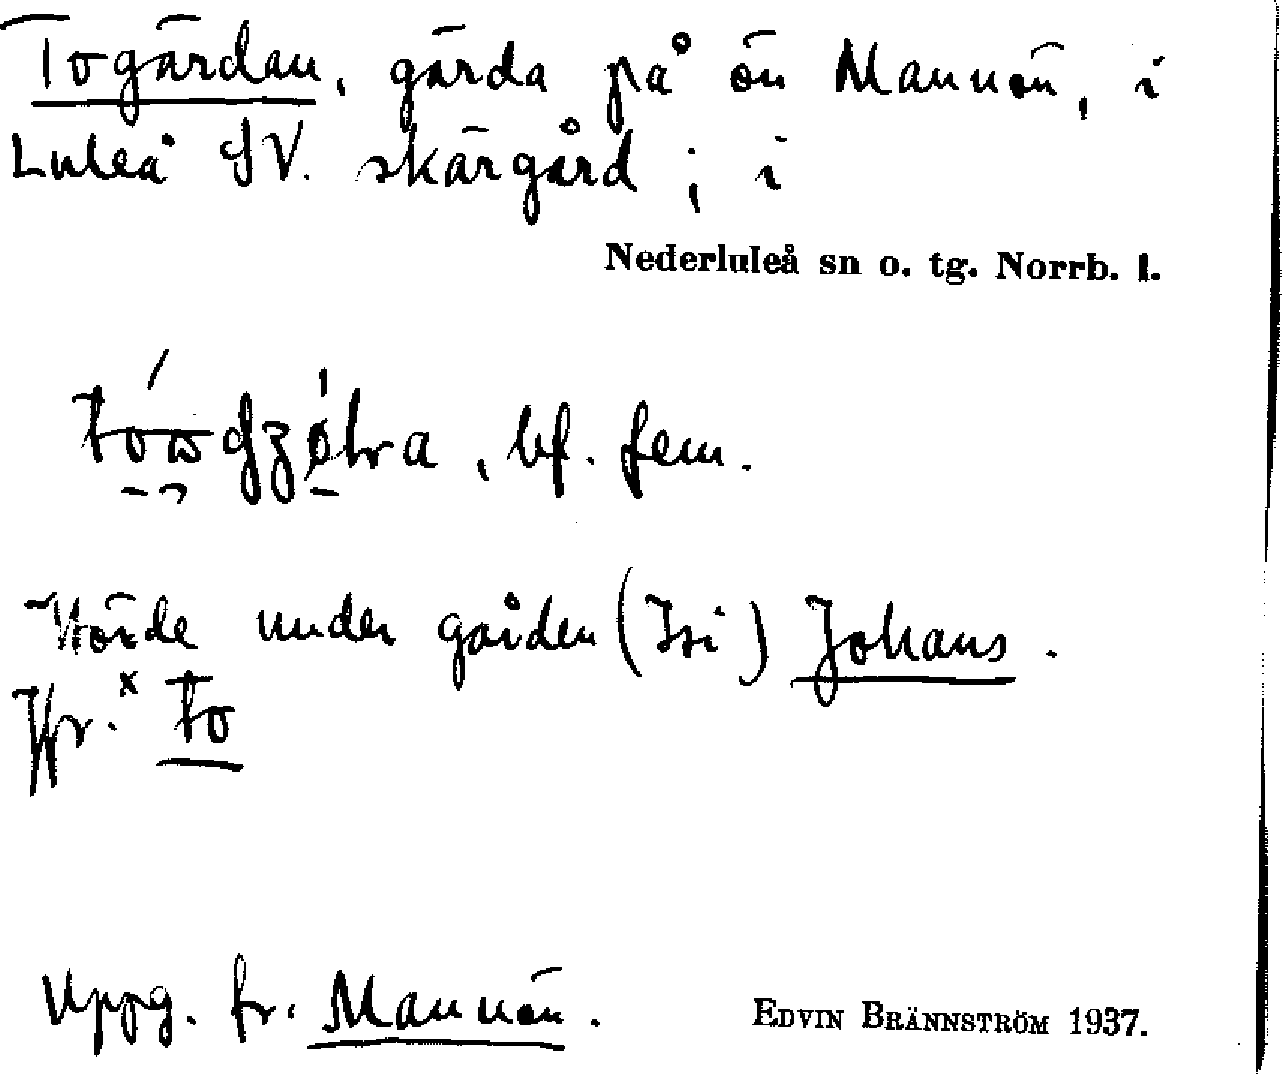 Togärdan, gärda på ön Mannön, i
Luleå SV. skärgård; i
Nederluleå sn o. tg. Norrb. l.
bf. fem.
Hörde under gården (Isi) Johans.
Jfr. x to
Uppg. fr. Mannön.
EDVIN BRÄNNSTRÖM 1937.